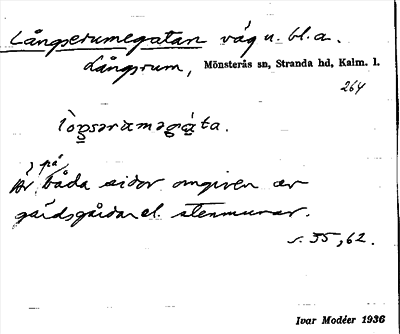 Långserumegatan väg u. bl. a.
Långsrum, Mönsterås sn, Stranda hd, Kalm. l.
264
lòŋsərɑməgɑ̀ta.
Är på båda sidor omgiven av
gärdsgårdar el. stenmurar.
s. 55, 62.
Ivar Modéer 1936